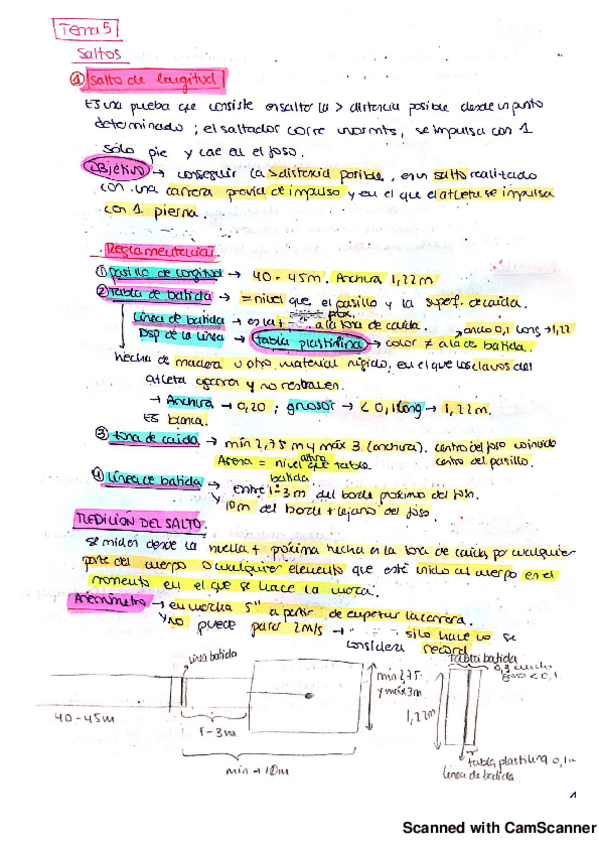 Tema 5
Saltos
① Salto de longitud
Es una prueba que consiste en salto la > distancia posible desde un punto
determinado ; el saltador corre unos mts, se impulsa con 1
sólo pie y cae en el foso.
Objetivo → conseguir la > distancia posible, en un salto realizado
con una carrera previa de impulso y en el que el atleta se impulsa
con 1 pierna.
Reglamentación
① pasillo de longitud → 40-45m. Anchura 1,22m
② Tabla de batida → = nivel que el pasillo y la superf. de caída.
Línea de batida → es la + próx. a la zona de caída.
Dsp de la línea → tabla plastilina → color ≠ a la de batida.
ancho 0,1 long → 1,22
hecha de madera u otro material rígido, en el que los clavos del
atleta agarren y no resbalen.
→ Anchura → 0,20 ; grosor → < 0,1 long → 1,22m.
Es blanca.
③ zona de caída → mín 2,75 m y máx 3 (anchura). centro del foso coincide
Arena = nivel altura que tabla batida
centro del pasillo.
④ Línea de batida → entre 1-3m del borde próximo del foso.
↘ 10m del borde + lejano del foso.
MEDICIÓN DEL SALTO.
se miden desde la huella + próxima hecha en la zona de caída, por cualquier
parte del cuerpo o cualquier elemento que esté unido al cuerpo en el
momento en el que se hace la marca.
Anemómetro → en marcha 5'' a partir de empezar la carrera.
↘ no puede pasar 2m/s → si lo hace no se
considera record
línea batida
40-45m
1-3m
min → 10m
min 2,75
y máx 3m
Tabla batida
1,22m
tabla plastilina 0,1m
línea de batida
1
Scanned with CamScanner